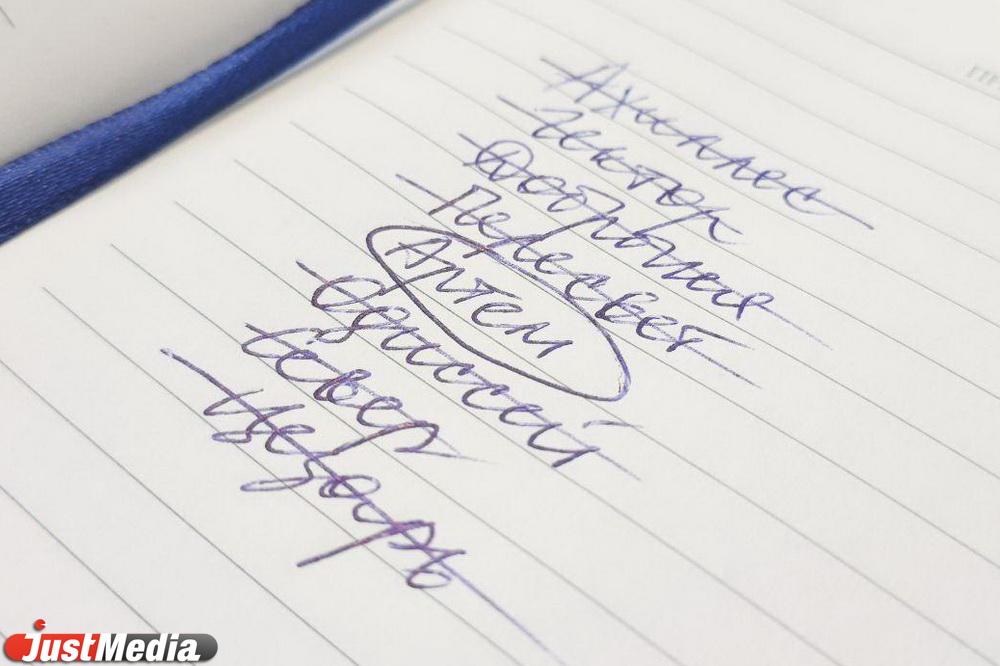 Ахиллес
Гектор
Добрыня
Пересвет
Артем
Одиссей
Север
Цезарь
JUSTMEDIA